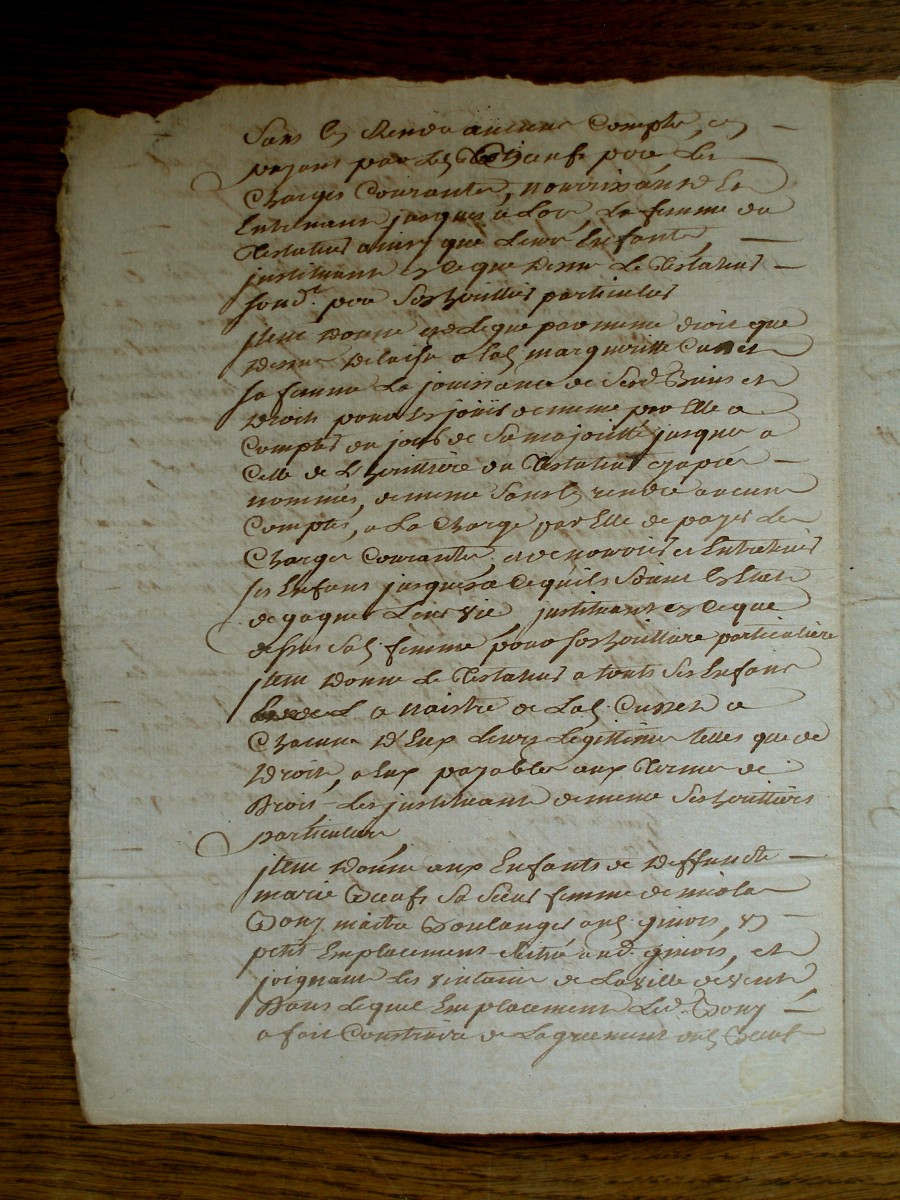 Sans en Rendre aucun Compte, en
payant par led Bœufs pour les
Charges Courantes, nourrissant et
Entretenant jusques alor, la femme du
Testateur ainsi que leurs Enfants,
jnstituant en ce que dessus le Testateur
pour ses heritiers particuliers
jtem donne et legue par meme droit que
dessus delaisse a lad. marguerite Cusset
sa femme La jouissance de ses Biens et
droits pour en joüir de meme par Elle a
Compter du jour de Sa majorité jusques a
Celle de L'heritiere du Testateur cy apres
nommée, de meme Sans en rendre aucun
Compte, a La Charge par Elle de payer les
Charges Courantes, et de nourrir et Entretenir
ses Enfans jusques a ce qu'ils Soient En Etat
de gagner Leur vie jnstituant en ce que
dessus Sad. femme pour son heritiere particuliere
jtem donne Le Testateur a touts Ses Enfans
a naistre de Lad. Cusset a
Chacun d'Eux Leurs Legittimes telles que de
droit, a Eux payables aux termes de
Droit Les jnstituant de meme Ses heritiers
particuliers
jtem donne aux Enfants de deffuncte
marie Bœufs Sa Sœur femme de nicolas
Bony maitre Boulanger aud. givors, un
petit Emplacement Scitué aud. givors, et
joignant Les vintains de La ville de vent
Dans Lequel Emplacement Led. Bony
a fait Construire de L'agreement dud. Bœuf